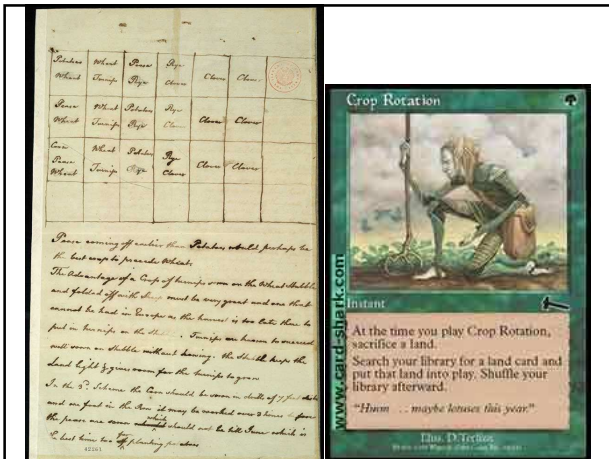 Potatoes Wheat Pease Rye
Wheat Turnips Rye Clover Clover Clover
Pease Wheat Potatoes Rye
Wheat Turnips Rye Clover Clover Clover
Corn Wheat Potatoes Rye
Pease Turnips Rye Clover Clover Clover
Wheat
Pease coming off earlier than Potatoes would perhaps be
the best crop to precede Wheat.
The Advantage of a Crop of turnips sown on the Wheat Stubble
and folded off with Sheep must be very great and one that
cannot be had in Europe as the harvest is too late there to
put in turnips on the Turnips are known to succeed
well sown on Stubble without hoeing. the Stubble keeps the
Land light & gives room for the turnips to grow
In the 3d. Scheme the Corn should be sown in drills of 7 feet
and one foot in the Row it may be worked
the pease are sown which should not be till June which is
the best time for planting
Crop Rotation
Instant
At the time you play Crop Rotation,
sacrifice a land.
Search your library for a land card and
put that land into play. Shuffle your
library afterward.
"Hmm . . . maybe lotuses this year."
Illus. D. Terlizzi
www.card-shark.com